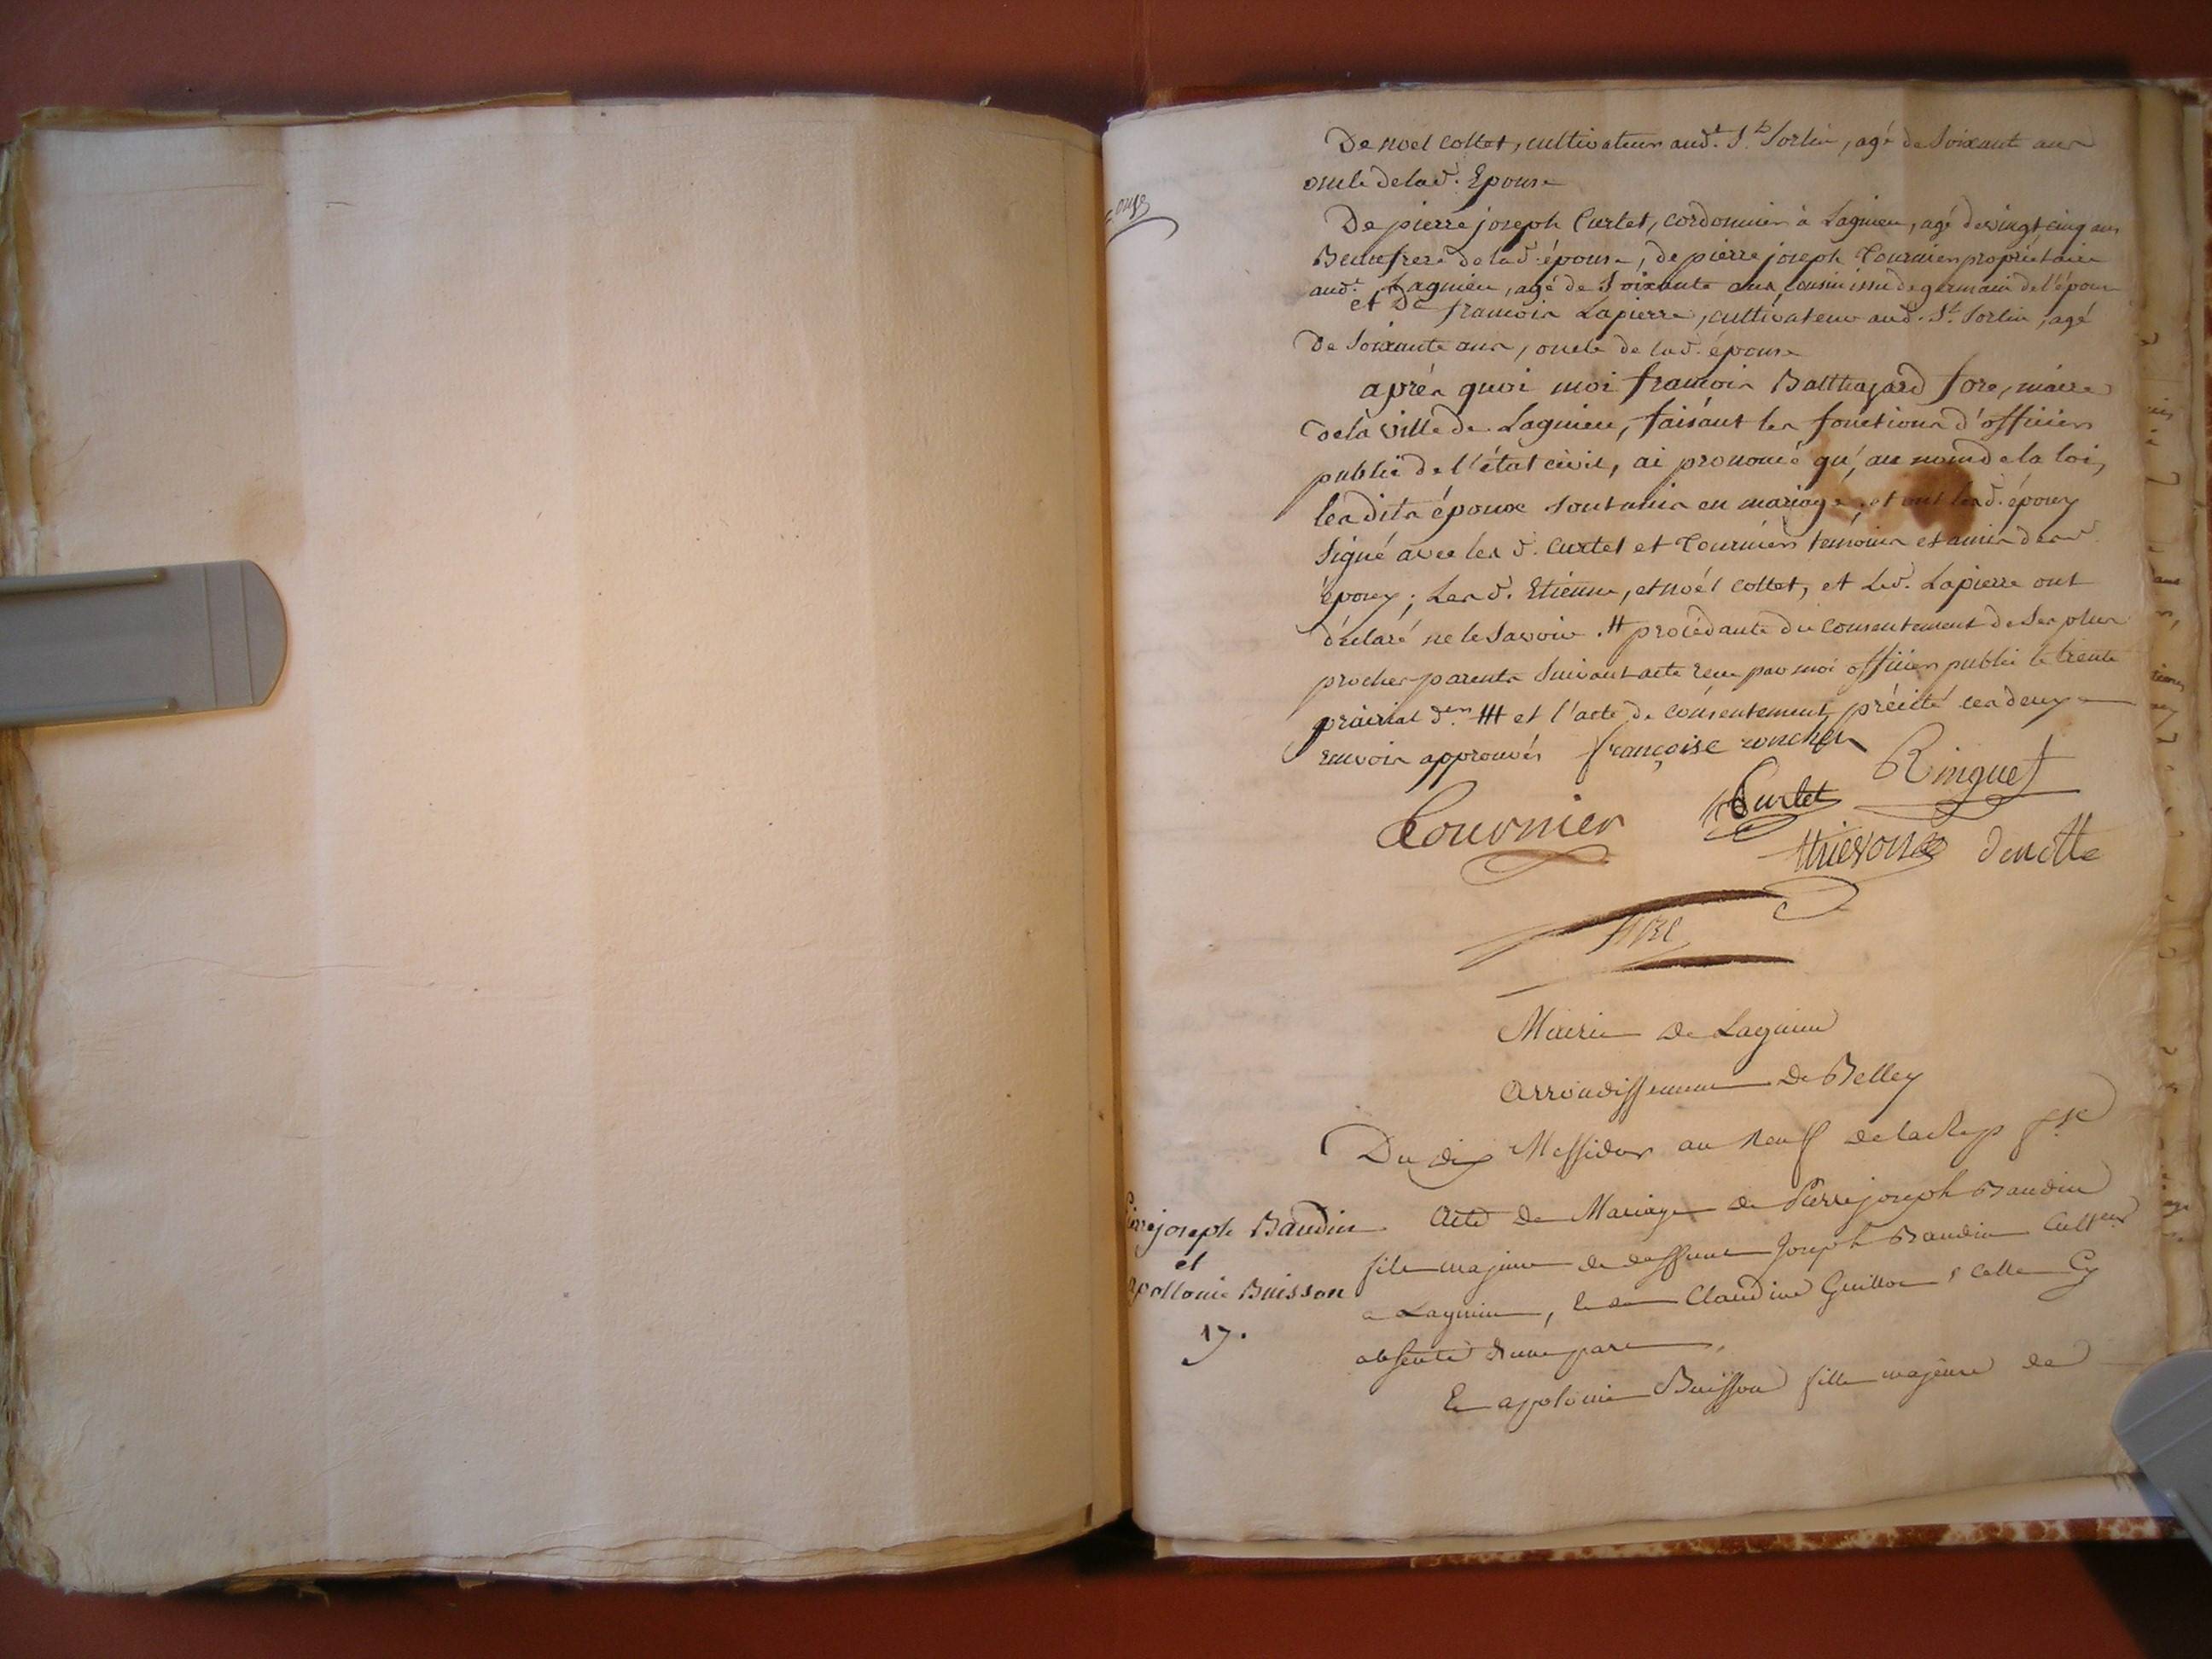 De noel collet, cultivateur aud.t S.t Sorlin, agé de Soixante ans
oncle de lad. Epouse
De pierre joseph Curtet, cordonnier à Lagnieu, agé de vingt cinq ans
Beaufrere de lad. épouse, de pierre joseph Tournier propriétaire
aud.t Lagnieu, agé de Soixante ans, cousin issu de germain de l'époux
et De francois Lapierre, cultivateur aud. S.t Sorlin, agé
De Soixante ans, oncle de lad. épouse
aprés quoi moi francois Balthazard fore, maire
de la ville de Lagnieu, faisant les fonctions d'officier
public de l'état civil, ai prononcé qu'au nom de la loi,
lesdits époux sont unis en mariage, et ont lesd. époux
signé avec les d. Curtet et Tournier temoins et amis desd.
époux; Les d. Etienne, et noél collet, et Led. Lapierre ont
déclaré ne le Savoir. # procédante du consentement de Ses plus
proches parents Suivant acte reçu par moi officier public le trente
prairial d.er ## et l'acte de consentement précité les deux
renvois approuvés françoise roncher
Ringuet
Curtet
Tournier
denotte
fore
Mairie De Lagnieu
Arrondissement De Belley
Du dix Messidor an Neuf de la Rep fse
Pierre joseph Baudin
et
apollonie Buisson
17.
Acte De Mariage de Pierre joseph Baudin
fils majeur de deffunt Joseph Baudin Culteur
a Lagnieu, et de Claudine Guillot, celle Cy
absente d'une part,
Et appolonie Buisson fille majeure de